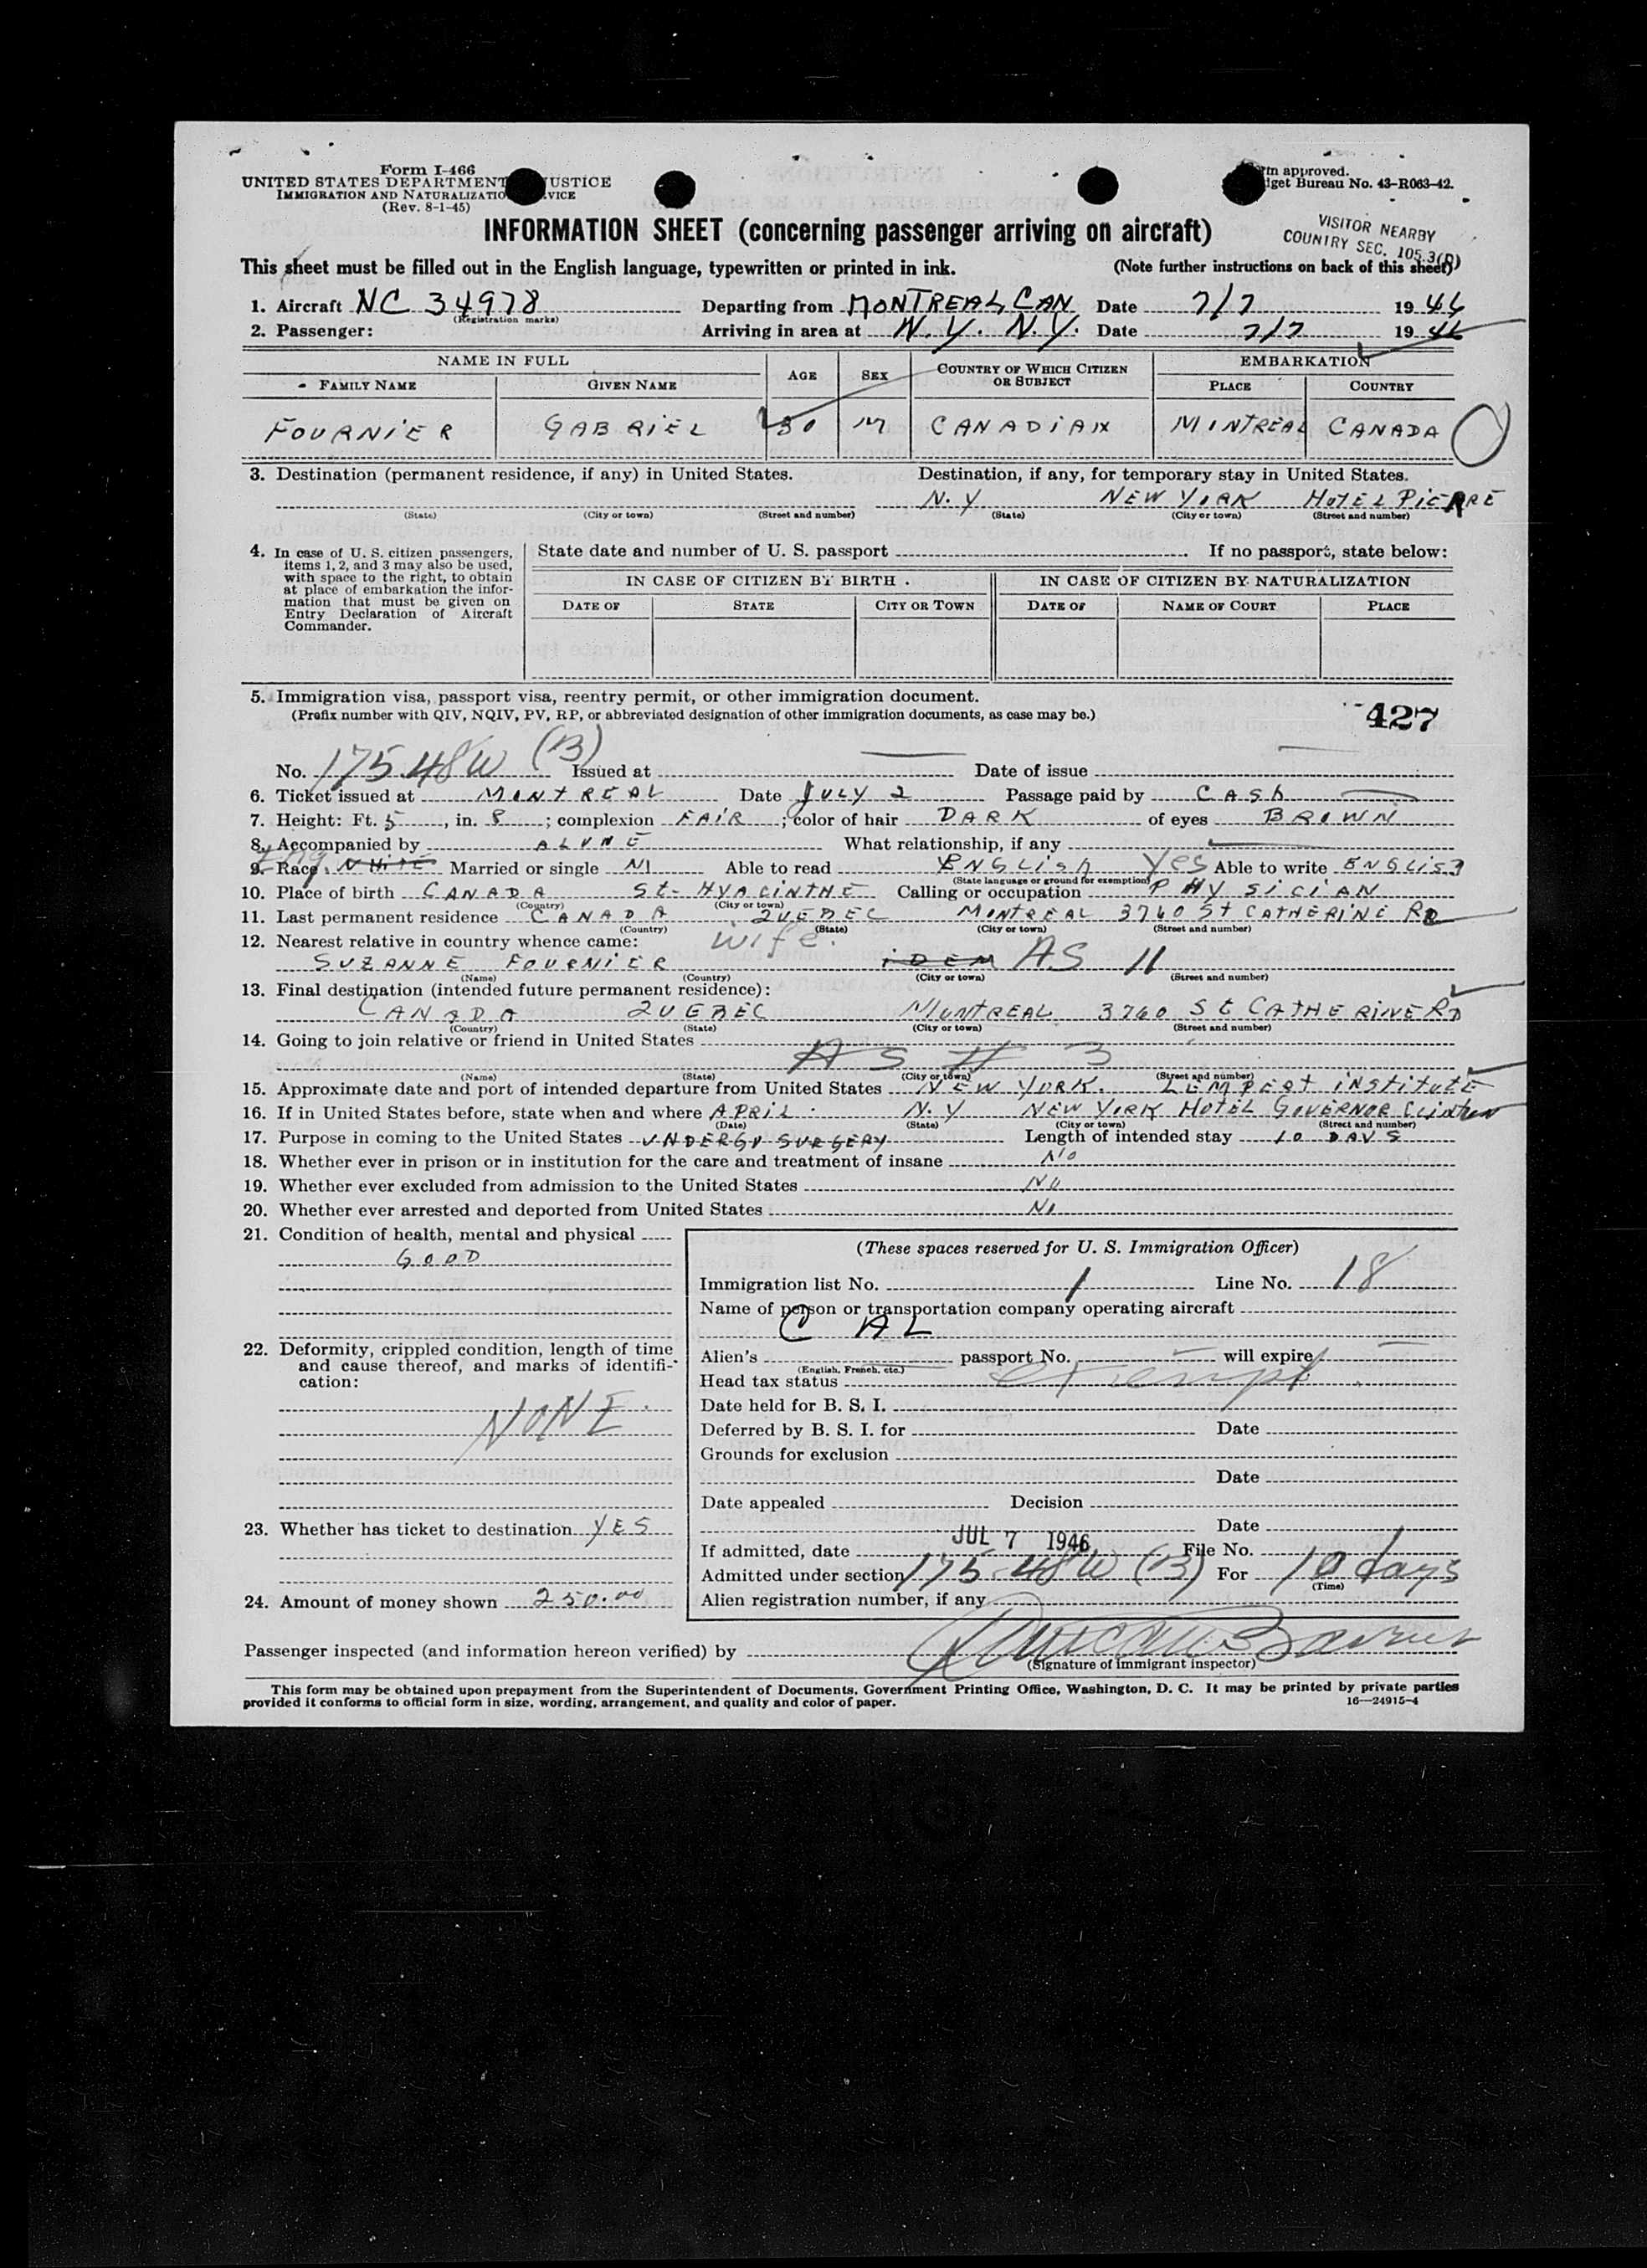 Form I-466
UNITED STATES DEPARTMENT JUSTICE
IMMIGRATION AND NATURALIZATIO VICE
(Rev. 8-1-45)
approved.
get Bureau No. 43-R063-42.
INFORMATION SHEET (concerning passenger arriving on aircraft)
VISITOR NEARBY
COUNTRY SEC. 105.3(B)
This sheet must be filled out in the English language, typewritten or printed in ink. (Note further instructions on back of this sheet)
1. Aircraft NC 34978 Departing from MONTREAL CAN Date 7/7 1946
(Registration marks)
2. Passenger: Arriving in area at N.Y. N.Y. Date 7/7 1946
NAME IN FULL AGE SEX COUNTRY OF WHICH CITIZEN OR SUBJECT EMBARKATION
FAMILY NAME GIVEN NAME PLACE COUNTRY
FOURNIER GABRIEL 30 M CANADIAN MONTREAL CANADA
3. Destination (permanent residence, if any) in United States. Destination, if any, for temporary stay in United States.
N.Y NEW YORK HOTEL PIERRE
(State) (City or town) (Street and number) (State) (City or town) (Street and number)
4. In case of U. S. citizen passengers, items 1, 2, and 3 may also be used, with space to the right, to obtain at place of embarkation the information that must be given on Entry Declaration of Aircraft Commander.
State date and number of U. S. passport If no passport, state below:
IN CASE OF CITIZEN BY BIRTH. IN CASE OF CITIZEN BY NATURALIZATION
DATE OF STATE CITY OR TOWN DATE OF NAME OF COURT PLACE
5. Immigration visa, passport visa, reentry permit, or other immigration document.
(Prefix number with QIV, NQIV, PV, RP, or abbreviated designation of other immigration documents, as case may be.)
427
No. 175.48W (B) Issued at Date of issue
6. Ticket issued at MONTREAL Date JULY 2 Passage paid by CASH
7. Height: Ft. 5, in. 8; complexion FAIR; color of hair DARK of eyes BROWN
8. Accompanied by ALONE What relationship, if any
9. Race Eng WHITE Married or single M Able to read ENGLISH Yes Able to write ENGLISH
(State language or ground for exemption)
10. Place of birth CANADA St-HYACINTHE Calling or occupation PHYSICIAN
(Country) (City or town)
11. Last permanent residence CANADA QUEBEC MONTREAL 3760 St CATHERINE RD
(Country) (State) (City or town) (Street and number)
12. Nearest relative in country whence came: wife.
SUZANNE FOURNIER IDEM AS 11
(Name) (Country) (City or town) (Street and number)
13. Final destination (intended future permanent residence):
CANADA QUEBEC MONTREAL 3760 St CATHERINE RD
(Country) (State) (City or town) (Street and number)
14. Going to join relative or friend in United States
AS # 3
(Name) (State) (City or town) (Street and number)
15. Approximate date and port of intended departure from United States NEW YORK. LEMPERT INSTITUTE
16. If in United States before, state when and where APRIL. N.Y NEW YORK HOTEL GOVERNOR CLINTON
(Date) (State) (City or town) (Street and number)
17. Purpose in coming to the United States UNDERGO SURGERY Length of intended stay 10 DAYS
18. Whether ever in prison or in institution for the care and treatment of insane NO
19. Whether ever excluded from admission to the United States NO
20. Whether ever arrested and deported from United States NO
21. Condition of health, mental and physical
GOOD
22. Deformity, crippled condition, length of time and cause thereof, and marks of identification:
NONE.
23. Whether has ticket to destination YES
24. Amount of money shown 250.00
(These spaces reserved for U. S. Immigration Officer)
Immigration list No. 1 Line No. 18
Name of person or transportation company operating aircraft
C AL
Alien's passport No. will expire
(English, French, etc.)
Head tax status exempt
Date held for B. S. I.
Deferred by B. S. I. for Date
Grounds for exclusion
Date
Date appealed Decision
Date
If admitted, date JUL 7 1946 File No.
Admitted under section 175.48W (B) For 10 days
(Time)
Alien registration number, if any
Passenger inspected (and information hereon verified) by
(Signature of immigrant inspector)
This form may be obtained upon prepayment from the Superintendent of Documents, Government Printing Office, Washington, D. C. It may be printed by private parties
provided it conforms to official form in size, wording, arrangement, and quality and color of paper. 16—24915-4